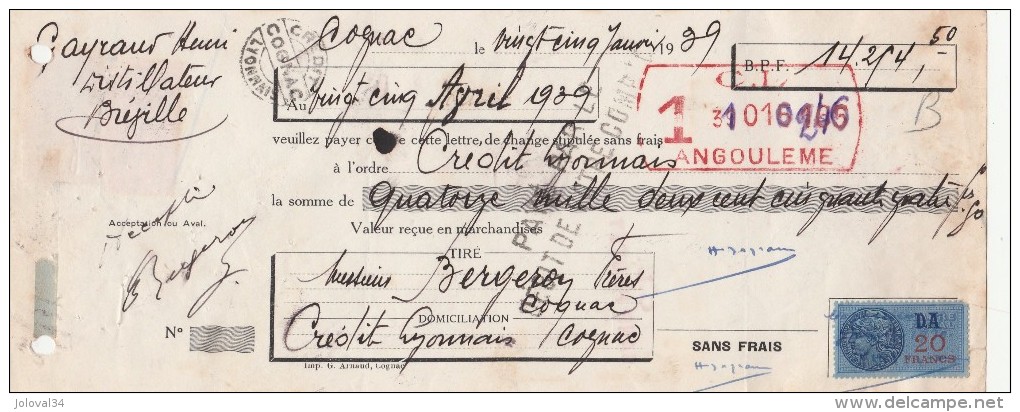 Gayraud Henri
Distillateur
Bréville
CRÉDIT LYONNAIS
COGNAC
Cognac le vingt cinq Janvier 1939
B.P.F. 14.254,50
Au vingt cinq Avril 1939
C.L.
1
ANGOULEME
B
veuillez payer contre cette lettre de change stipulée sans frais
à l'ordre Crédit Lyonnais
la somme de Quatorze mille deux cent cinquante quatre frs 50
Valeur reçue en marchandises
Acceptation ou Aval.
Accepté
Bergeron
TIRÉ
Messieurs Bergeron Frères
Cognac
DOMICILIATION
Crédit Lyonnais Cognac
Nº
SANS FRAIS
D.A
20
FRANCS
Imp. G. Arnaud, Cognac
joloval34
delcampe.net